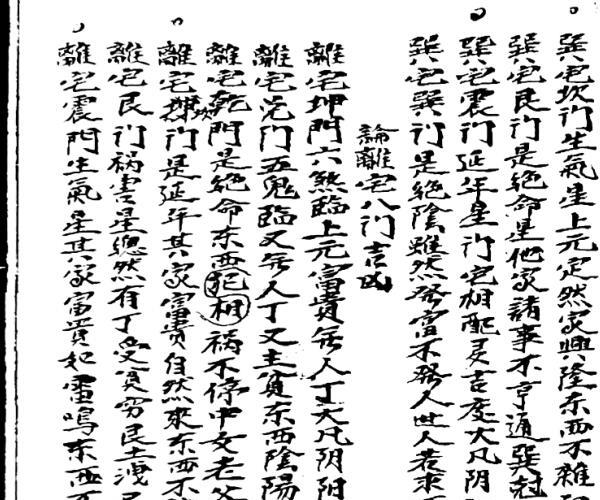 巽宅坎门生氣星上元定然家興隆东西不雜
巽宅艮门是絕命星他家諸事不亨通巽
巽宅震门延年星门宅相配灵吉度大凡阴
巽宅巽门是絕陰雖然發富不發人世人若求
論離宅八门吉凶
離宅坤門六煞臨上元富貴無人丁大凡阴阳
離宅兑门五鬼臨又無人丁又主貧东西陰陽
離宅乾門是絕命东西犯相禍不停中女老父
離宅坎门是延年其家富贵自然來东西不
離宅艮门祸害星總然有丁受貧穷艮土洩
離宅震門生氣星其家富貴如雷鳴东西